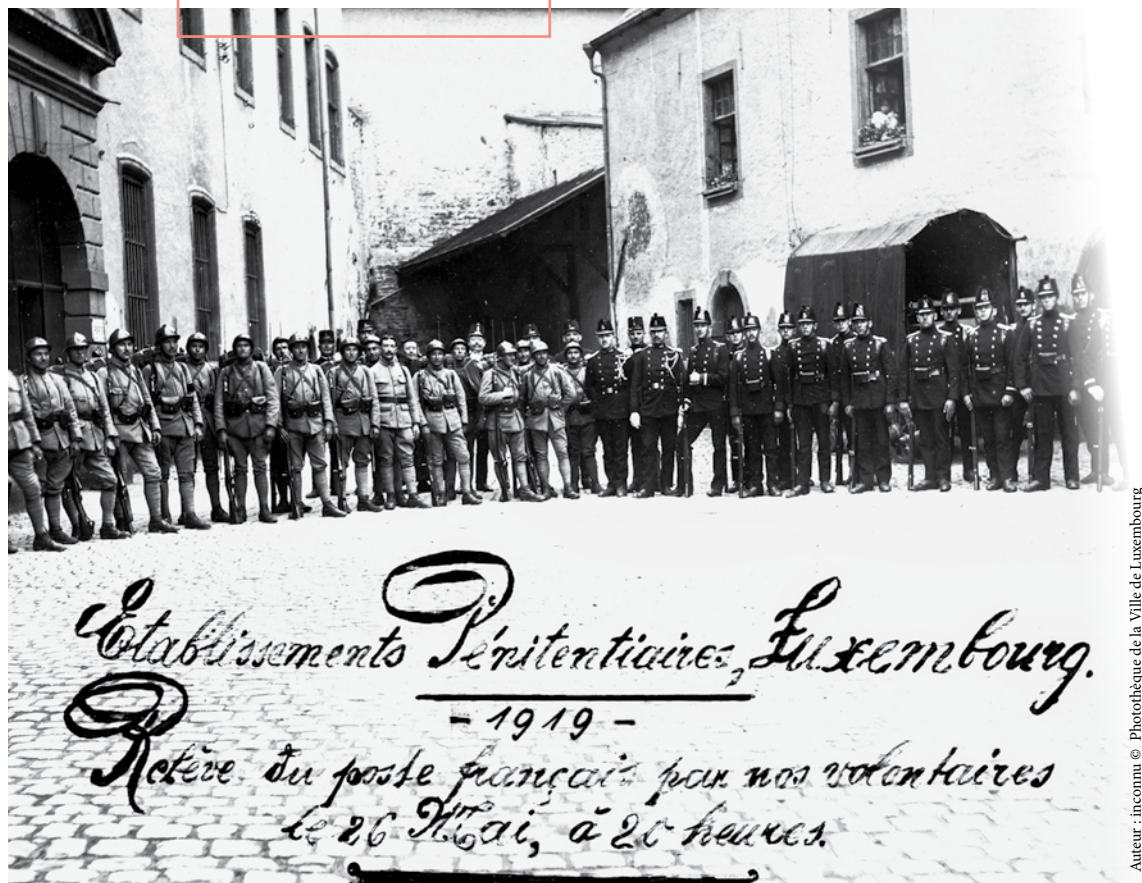 Etablissements Pénitentiaires, Luxembourg.
- 1919 -
Relève du poste français par nos volontaires
le 26 Mai, à 20 heures.
Auteur : inconnu © Photothèque de la Ville de Luxembourg